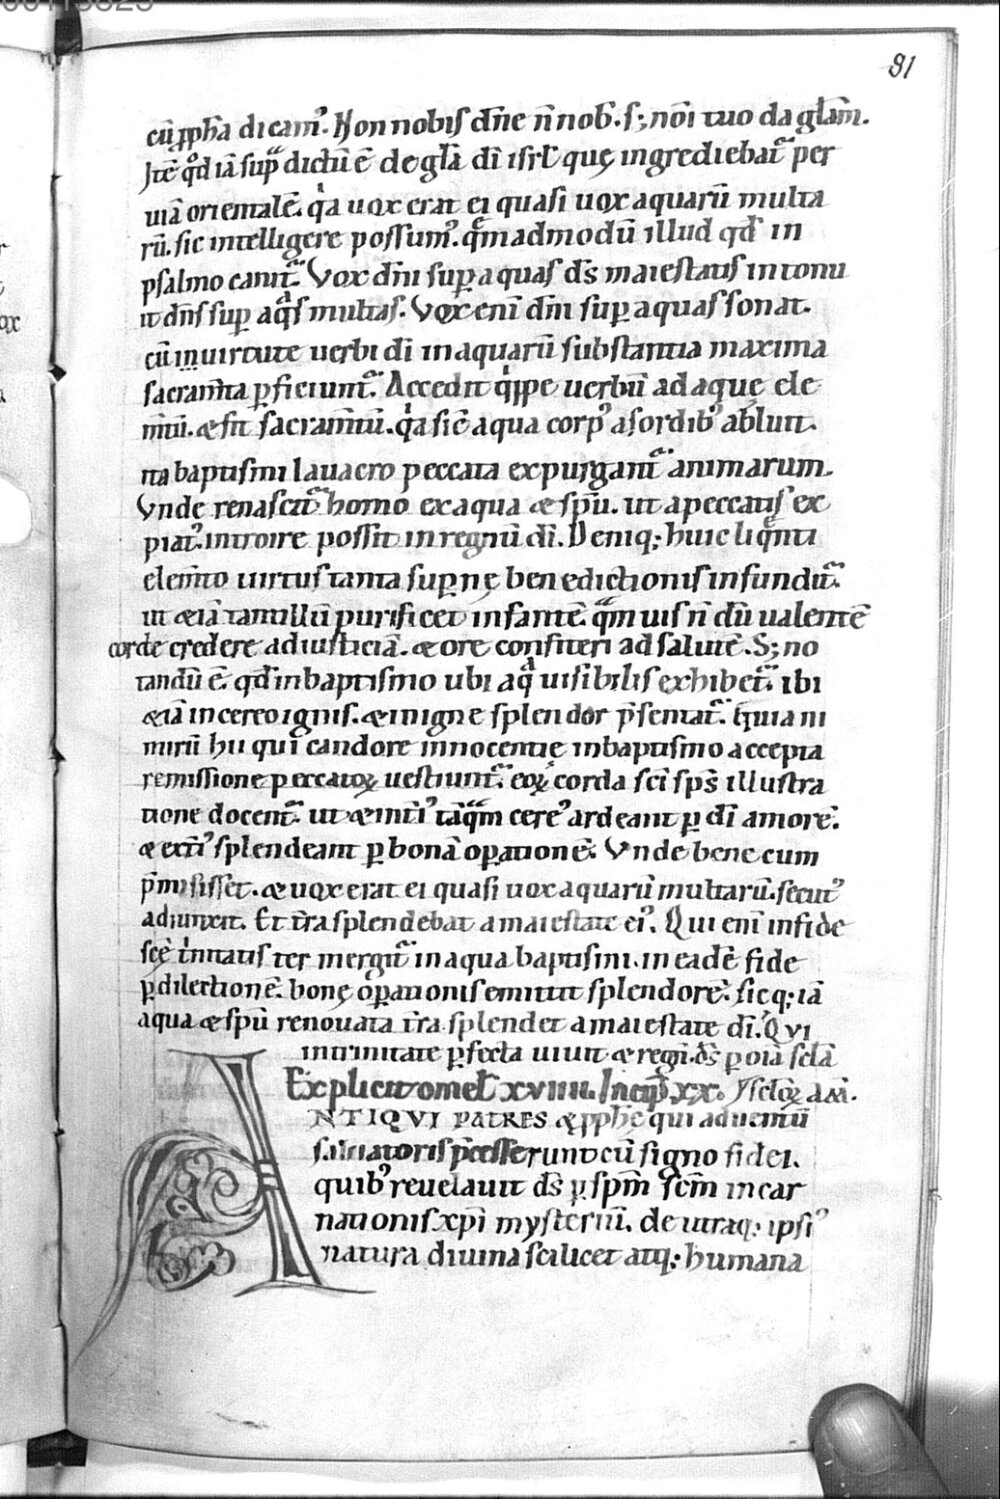 81
cū ꝓph̄a dicam᷒. Non nobis dn̄e n̄ nob̄. s; nōi tuo da gl̄am.
Itē qd̄ iā sup̄ dictū ē de gl̄a dī isrl̄ quę ingrediebat᷑ per
uiā orientalē. qͥa uox erat ei quasi uox aquarū multa
rū. sic intelligere possum᷒. qͣm̄admodū illud qd̄ in
psalmo canit᷑. Vox dn̄i sup aquas ds̄ maiestatis intonu
it dn̄s sup aqͣs multas. Vox enī dn̄i sup aquas sonat.
cū in uirtute uerbi dī in aquarū substantia maxima
sacram̄ta ꝑficiunt᷑. Accedit qͥppe uerbū ad aquę ele
m̄tū. & fit sacram̄tū. qͥa sic̄ aqua corp᷒ a sordib᷒ abluit.
ita baptismi lauacro peccata expurgant᷑ animarum.
Vnde renascit᷑ homo ex aqua & sp̄u. ut a peccatis ex
piat᷒. introire possit in regnū dī. Deniq; huic liqͥnti
elem̄to uirtus tanta supnę benedictionis infundit᷑.
ut &iā tantillū purificet infantē. qͣm uis n̄ dū ualentē
corde credere ad iusticiā. & ore confiteri ad salutē. S; no
tandū ē. qd̄ in baptismo ubi aqͣ uisibilis exhibet᷑. ibi
&iā in cereo ignis. & in igne splendor p̄sentat᷑. Quia ni
mirū hii qui candore innocentię in baptismo accepta
remissione peccatoꝝ uestiunt᷑. eoꝝ corda sc̄i sp̄s illustra
tione docent᷑. ut & int᷒ tāqͣm cere᷒ ardeant ꝑ dī amorē.
& ext᷒ splendeant ꝑ bonā oꝑationē. Vnde bene cum
p̄misisset. & uox erat ei quasi uox aquarū multarū. secut᷒
adiunxit. Et t̄ra splendebat a maiestate ei᷒. Qui enī in fide
sc̄ę tͥnitatis ter mergit᷑ in aqua baptismi. in eadē fide
ꝑ dilectionē. bonę oꝑationis emittit splendorē. sicq; iā
aqua & sp̄u renouata t̄ra splendet a maiestate dī. Qui
in trinitate ꝑfecta uiuit & regn̄. ds̄ ꝑ oīa sc̄la
Explicit omel̄ xviiii. Incip̄ xx. sc̄loꝝ am̄.
ANTIQVI PATRES & ꝓph̄ę qui aduentū
saluatoris p̄cesserunt cū signo fidei.
quib᷒ reuelauit ds̄ ꝑ spm̄ scm̄ incar
nationis xp̄i mysteriū. de utraq; ipsi᷒
natura diuina scilicet atq; humana